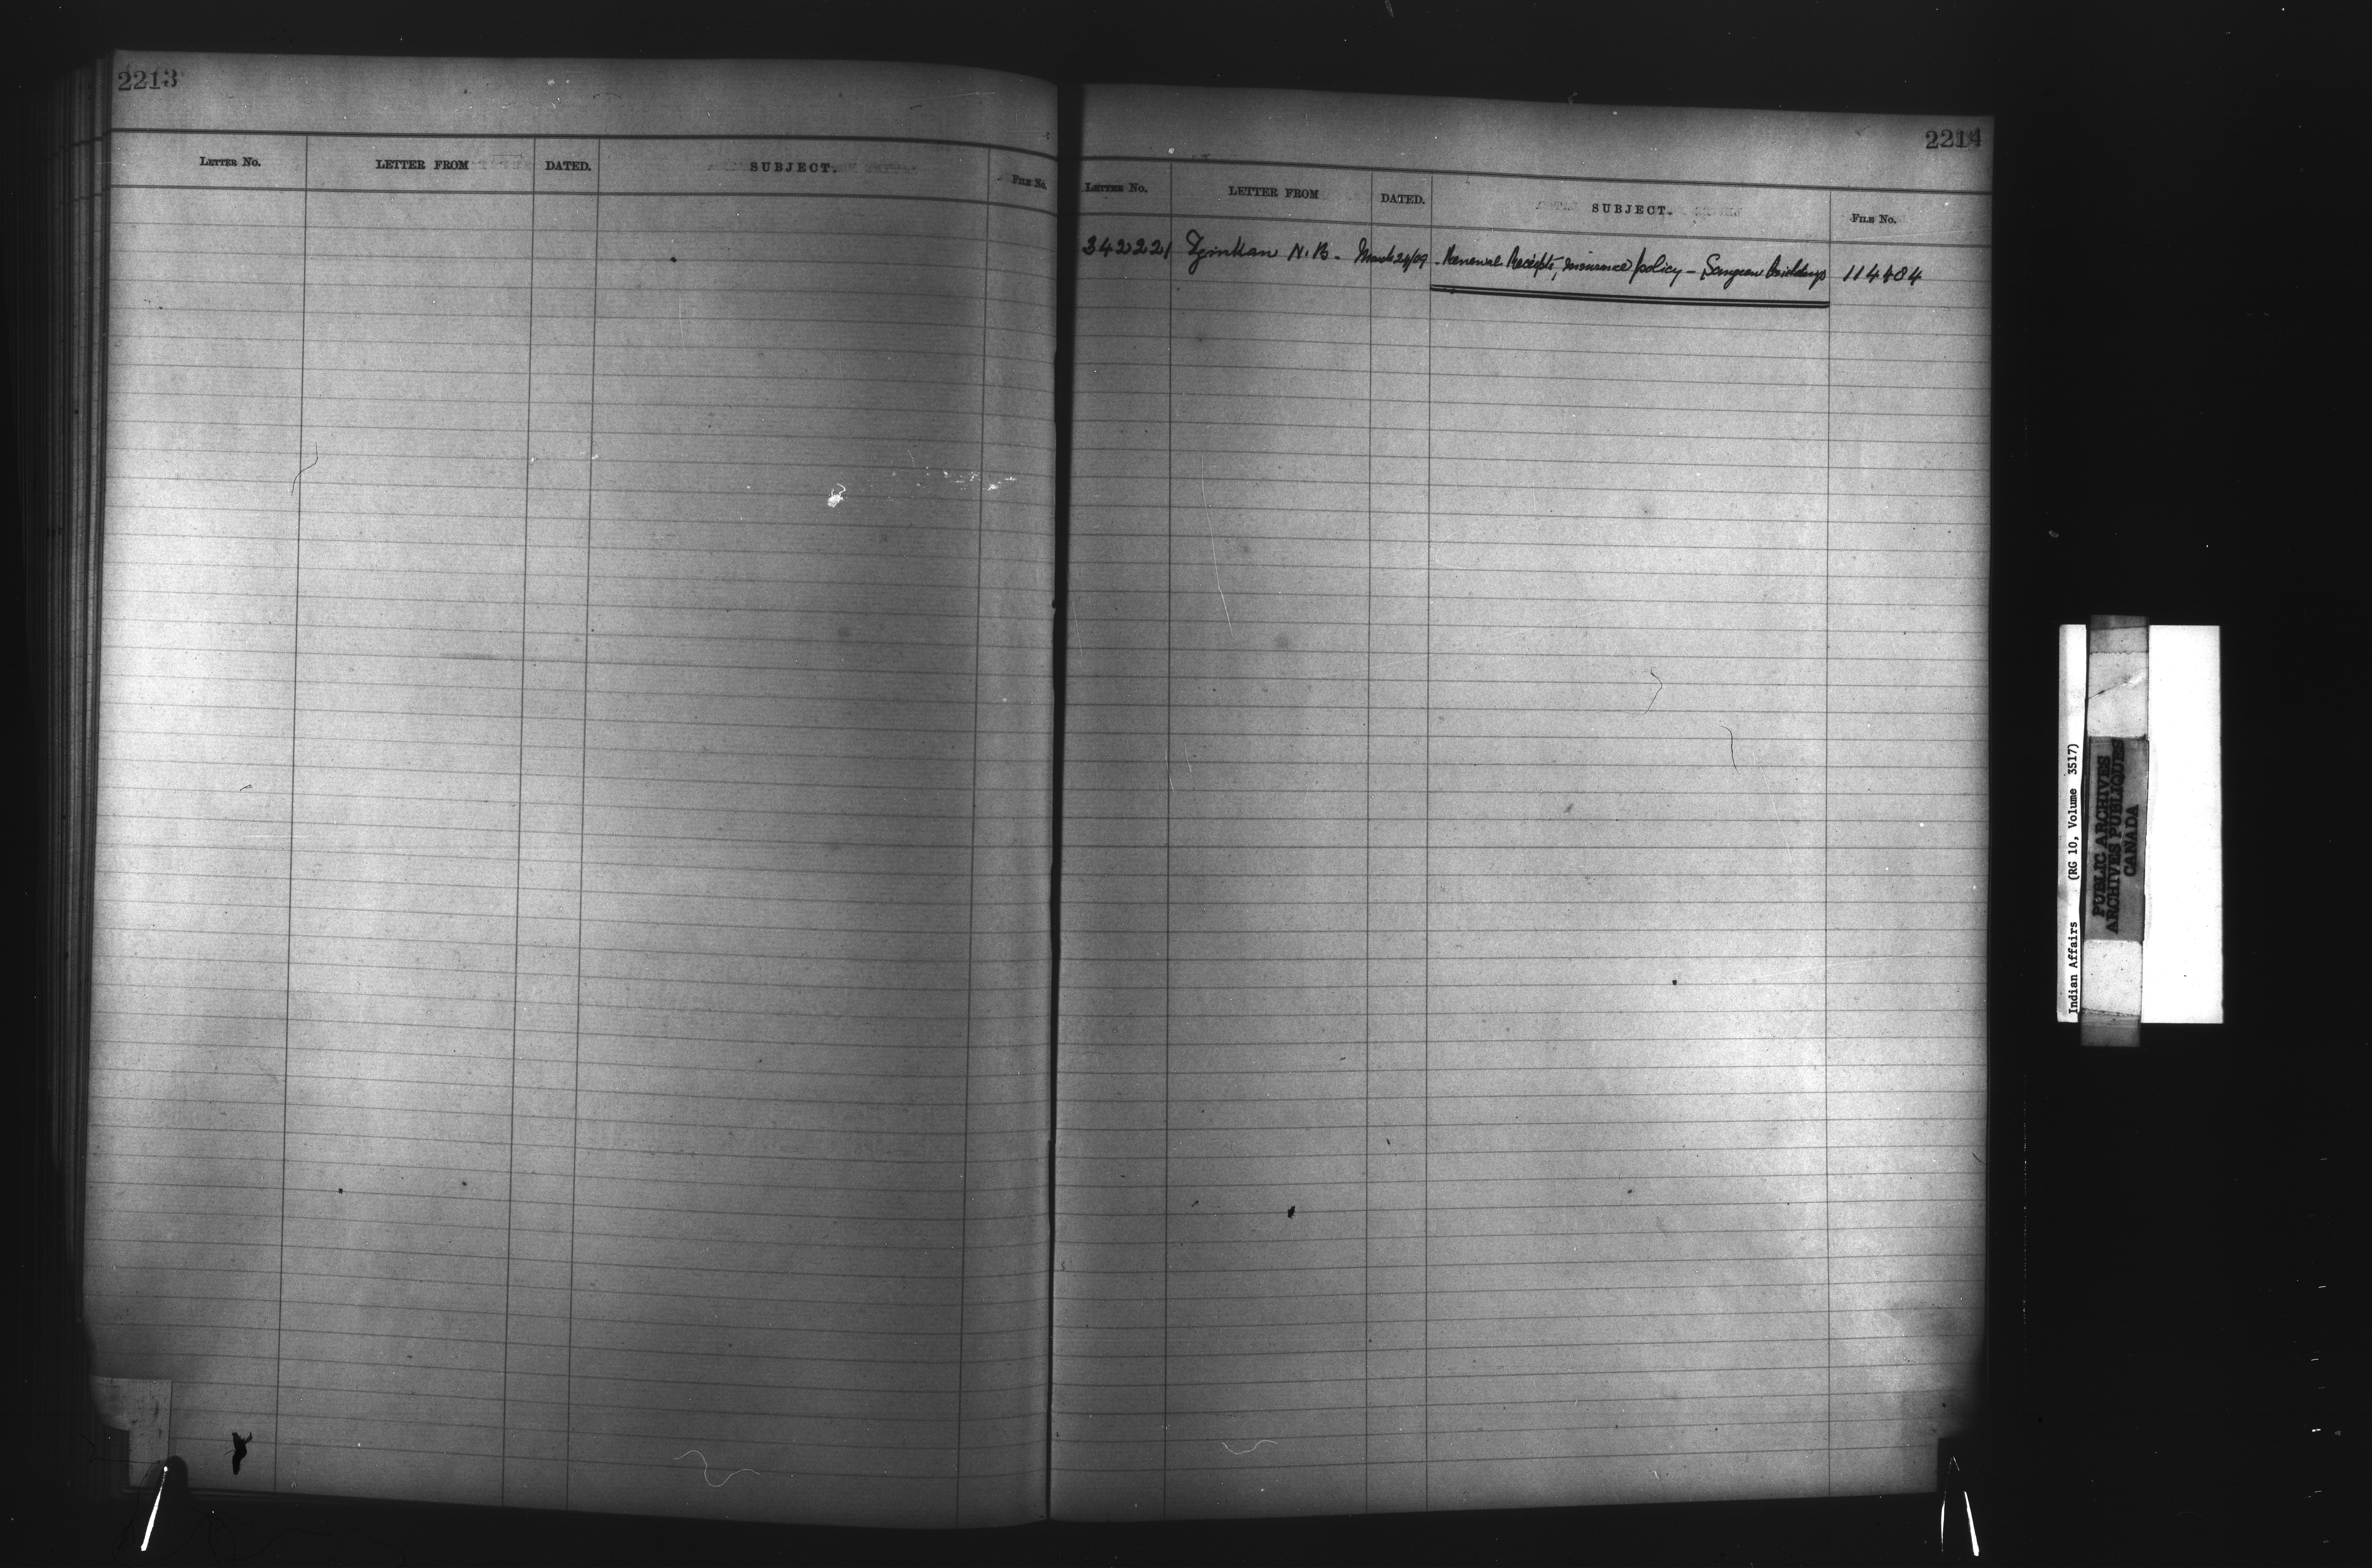 2213
LETTER No. LETTER FROM DATED. SUBJECT. FILE No.
2214
LETTER No. LETTER FROM DATED. SUBJECT. FILE No.
342221 N. B. - March 24/09 - Renewal Receipts, insurance policy - Saugeen Buildings 114484
Indian Affairs (RG 10, Volume 3517)
PUBLIC ARCHIVES
ARCHIVES PUBLIQUES
CANADA